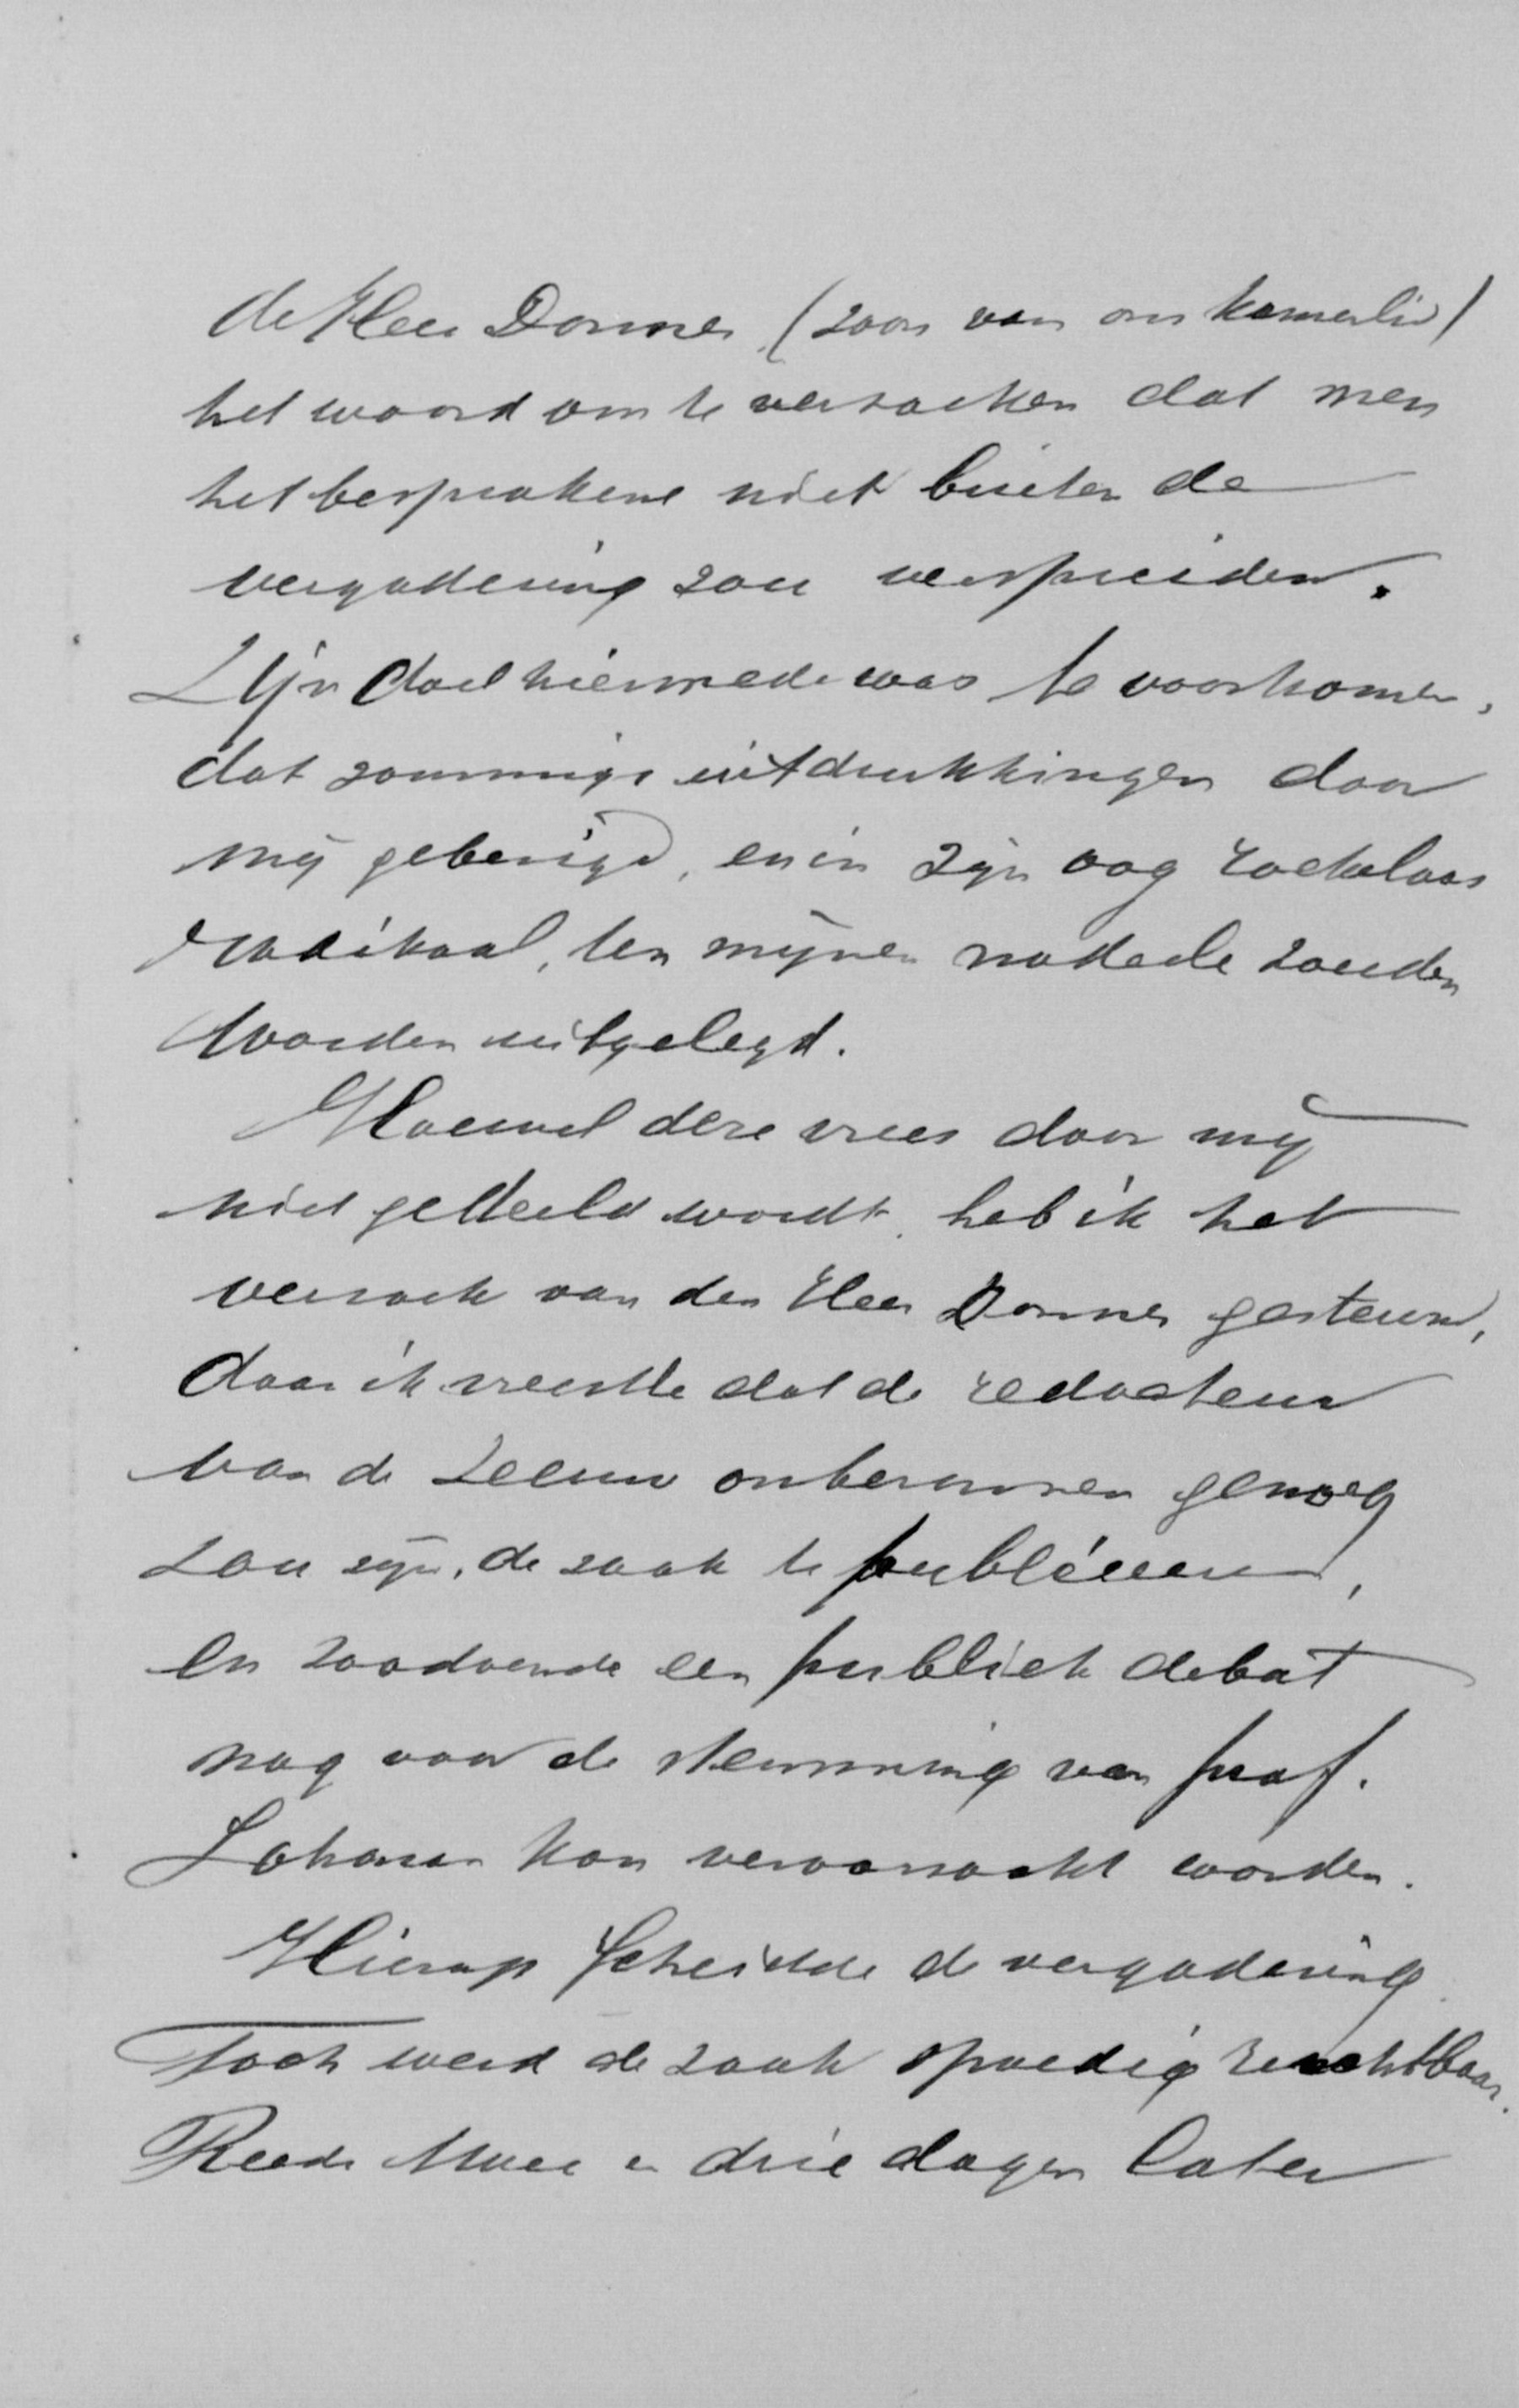 de Heer Donner (zoon van ons kamerlid)
het woord om te verzoeken dat men
het besprokene niet buiten de
vergadering zou verspreiden.
Zijn doel hiermede was te voorkomen,
dat sommige uitdrukkingen door
mij gebezigd, en in zijn oog roekeloos
radikaal, ten mijnen nadeele zouden
worden uitgelegd.
Hoewel deze vrees door mij
niet gedeeld wordt, heb ik het
verzoek van den Heer Donner gesteund,
daar ik vreesde dat de redacteur
van de Leeuw onbezonnen genoeg
zou zijn, de zaak te publiceeren,
en zoodoende een publiek debat
nog voor de stemming van prof.
Lohman kon veroorzaakt worden.
Hierop scheidde de vergadering.
Toch werd de zaak spoedig ruchtbaar.
Reeds twee a drie dagen later